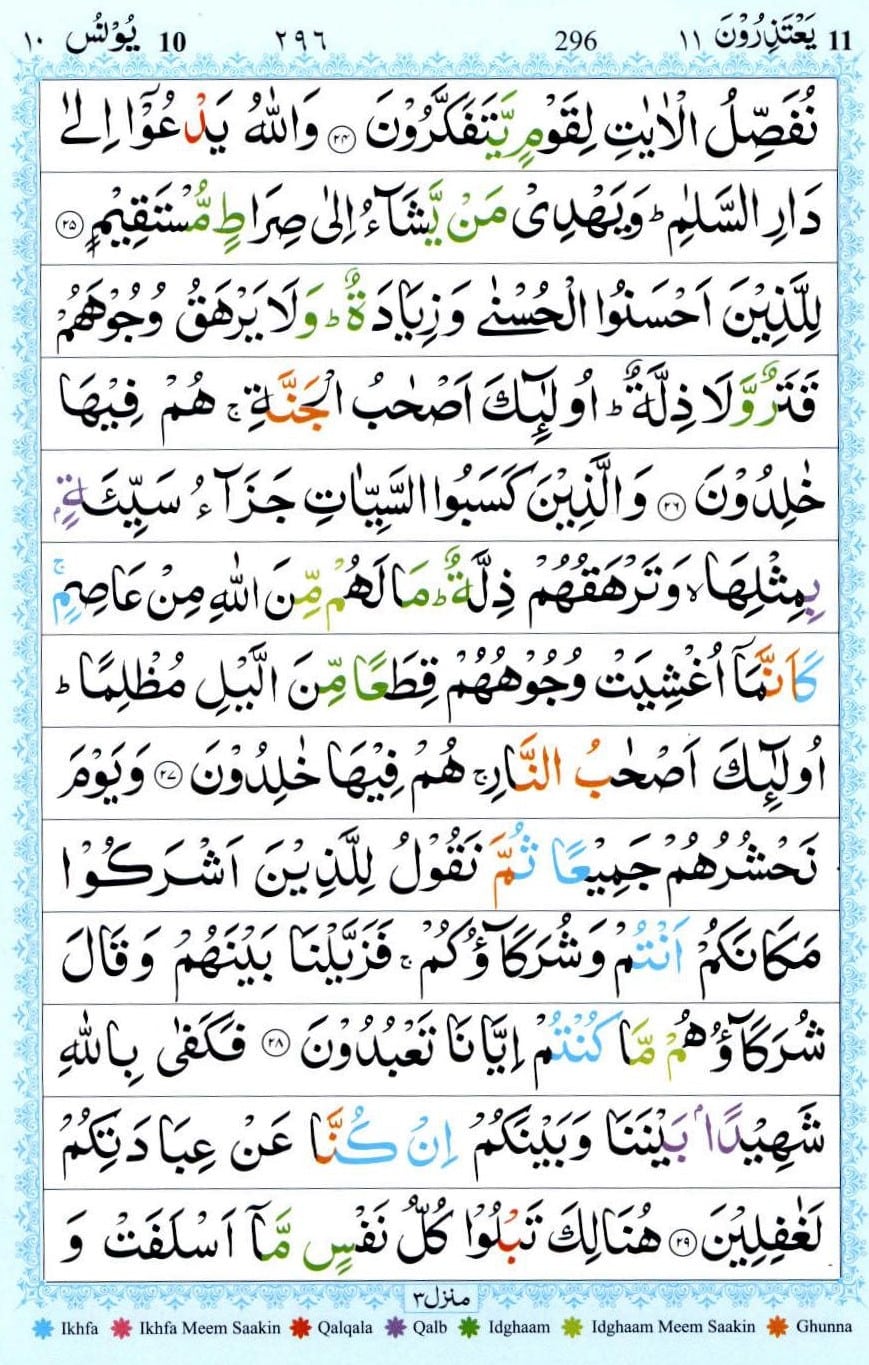 11 يَعْتَذِرُوْنَ ١١ 296 ٢٩٦ 10 يُوْنُسُ ١٠
نُفَصِّلُ الْاٰيٰتِ لِقَوْمٍ يَّتَفَكَّرُوْنَ ٢٤ وَاللّٰهُ يَدْعُوْٓا اِلٰى
دَارِ السَّلٰمِ ؕ وَيَهْدِىْ مَنْ يَّشَآءُ اِلٰى صِرَاطٍ مُّسْتَقِيْمٍ ٢٥
لِلَّذِيْنَ اَحْسَنُوا الْحُسْنٰى وَزِيَادَةٌ ؕ وَلَا يَرْهَقُ وُجُوْهَهُمْ
قَتَرٌ وَّلَا ذِلَّةٌ ؕ اُولٰٓئِكَ اَصْحٰبُ الْجَنَّةِ ۚ هُمْ فِيْهَا
خٰلِدُوْنَ ٢٦ وَالَّذِيْنَ كَسَبُوا السَّيِّاٰتِ جَزَآءُ سَيِّئَةٍۭ
بِمِثْلِهَا ۙ وَتَرْهَقُهُمْ ذِلَّةٌ ؕ مَا لَهُمْ مِّنَ اللّٰهِ مِنْ عَاصِمٍ ۚ
كَاَنَّمَآ اُغْشِيَتْ وُجُوْهُهُمْ قِطَعًا مِّنَ الَّيْلِ مُظْلِمًا ؕ
اُولٰٓئِكَ اَصْحٰبُ النَّارِ ۚ هُمْ فِيْهَا خٰلِدُوْنَ ٢٧ وَيَوْمَ
نَحْشُرُهُمْ جَمِيْعًا ثُمَّ نَقُوْلُ لِلَّذِيْنَ اَشْرَكُوْا
مَكَانَكُمْ اَنْتُمْ وَشُرَكَآؤُكُمْ ۚ فَزَيَّلْنَا بَيْنَهُمْ وَقَالَ
شُرَكَآؤُهُمْ مَّا كُنْتُمْ اِيَّانَا تَعْبُدُوْنَ ٢٨ فَكَفٰى بِاللّٰهِ
شَهِيْدًاۢ بَيْنَنَا وَبَيْنَكُمْ اِنْ كُنَّا عَنْ عِبَادَتِكُمْ
لَغٰفِلِيْنَ ٢٩ هُنَالِكَ تَبْلُوْا كُلُّ نَفْسٍ مَّآ اَسْلَفَتْ وَ
منزل ٣
Ikhfa Ikhfa Meem Saakin Qalqala Qalb Idghaam Idghaam Meem Saakin Ghunna